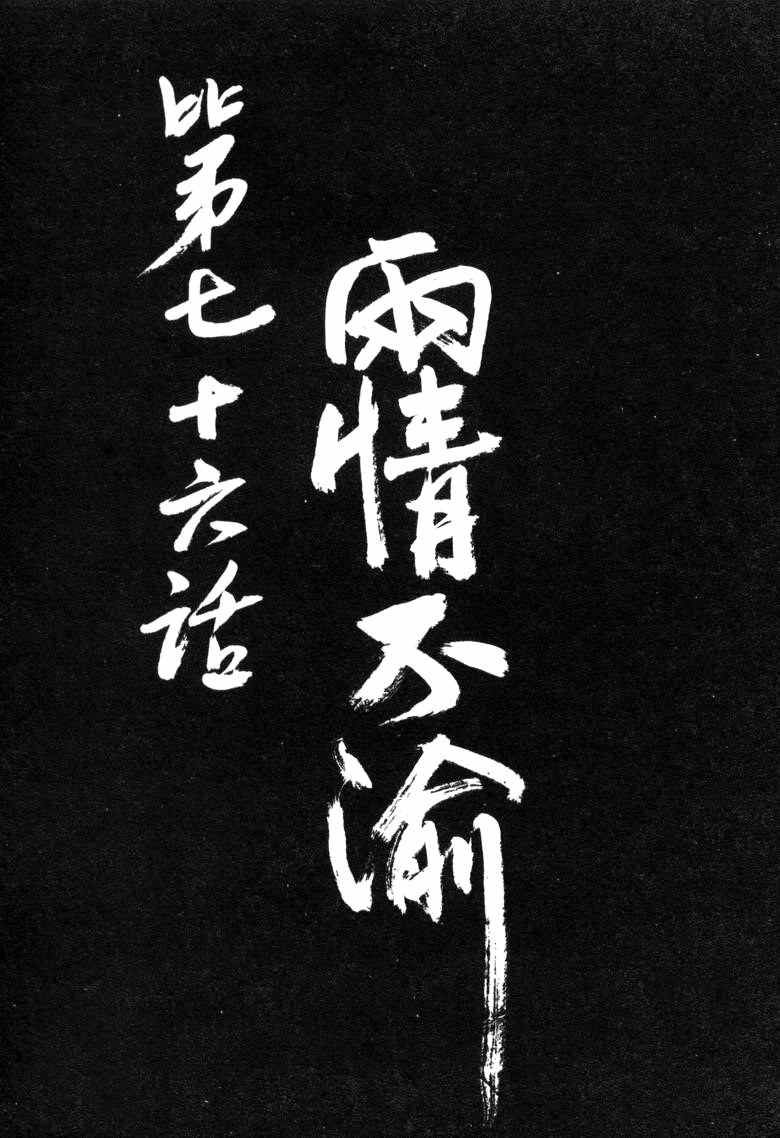 兩情不渝
第七十六話